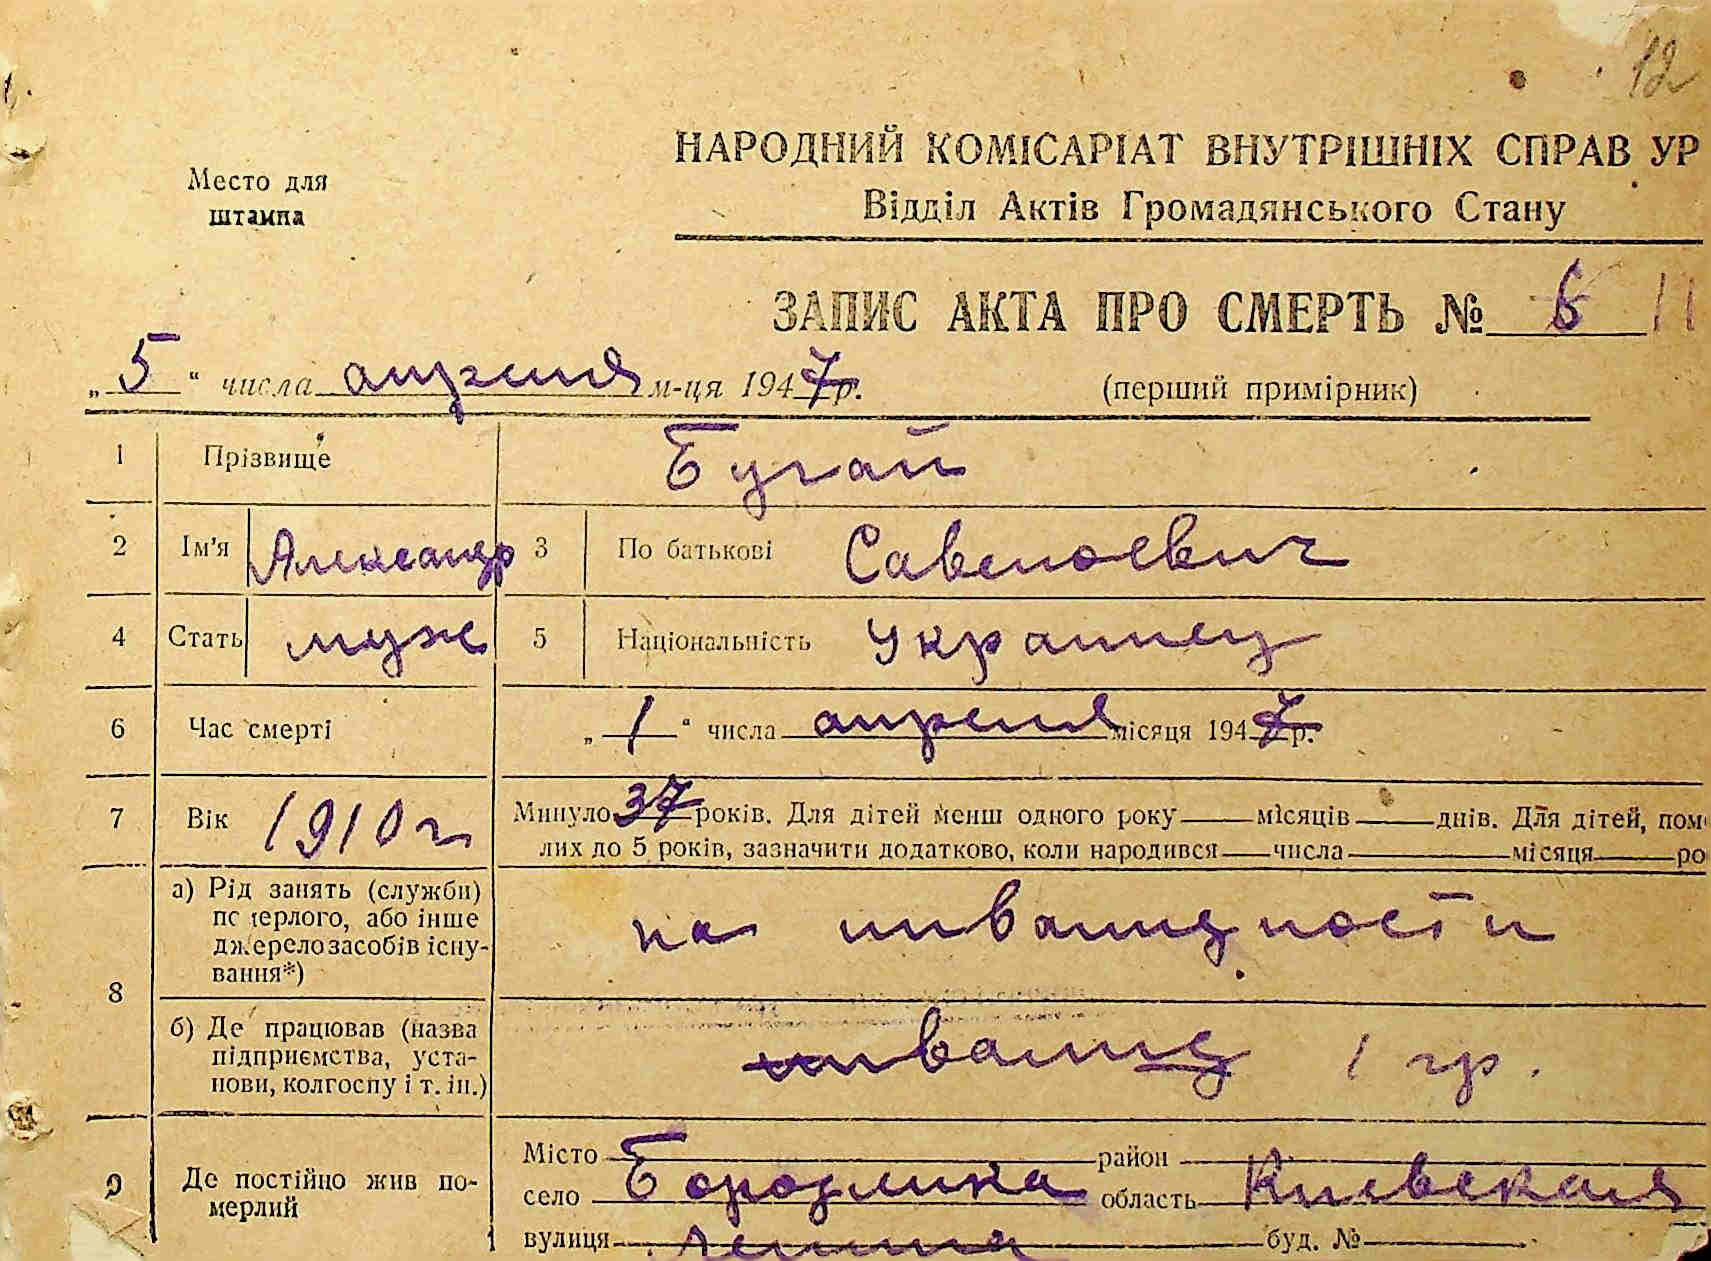 12
НАРОДНИЙ КОМІСАРІАТ ВНУТРІШНІХ СПРАВ УР
Место для
штампа
Відділ Актів Громадянського Стану
ЗАПИС АКТА ПРО СМЕРТЬ № 6 11
„5“ числа апреля м-ця 1947 р. (перший примірник)
1 Прізвище Бугай
2 Ім'я Александр 3 По батькові
4 Стать муж 5 Національність Украинец
6 Час смерті „1“ числа апреля місяця 1947 р.
7 Вік 1910 г Минуло 37 років. Для дітей менш одного року — місяців — днів. Для дітей, пом
лих до 5 років, зазначити додатково, коли народився — числа — місяця — ро
8 а) Рід занять (служби)
померлого, або інше
джерело засобів існу-
вання*) на инвалидности
б) Де працював (назва
підприємства, уста-
нови, колгоспу і т. ін.) инвалид 1 гр.
9 Де постійно жив по-
мерлий
Місто район
село Бородянка область Киевская
вулиця Ленина буд. №